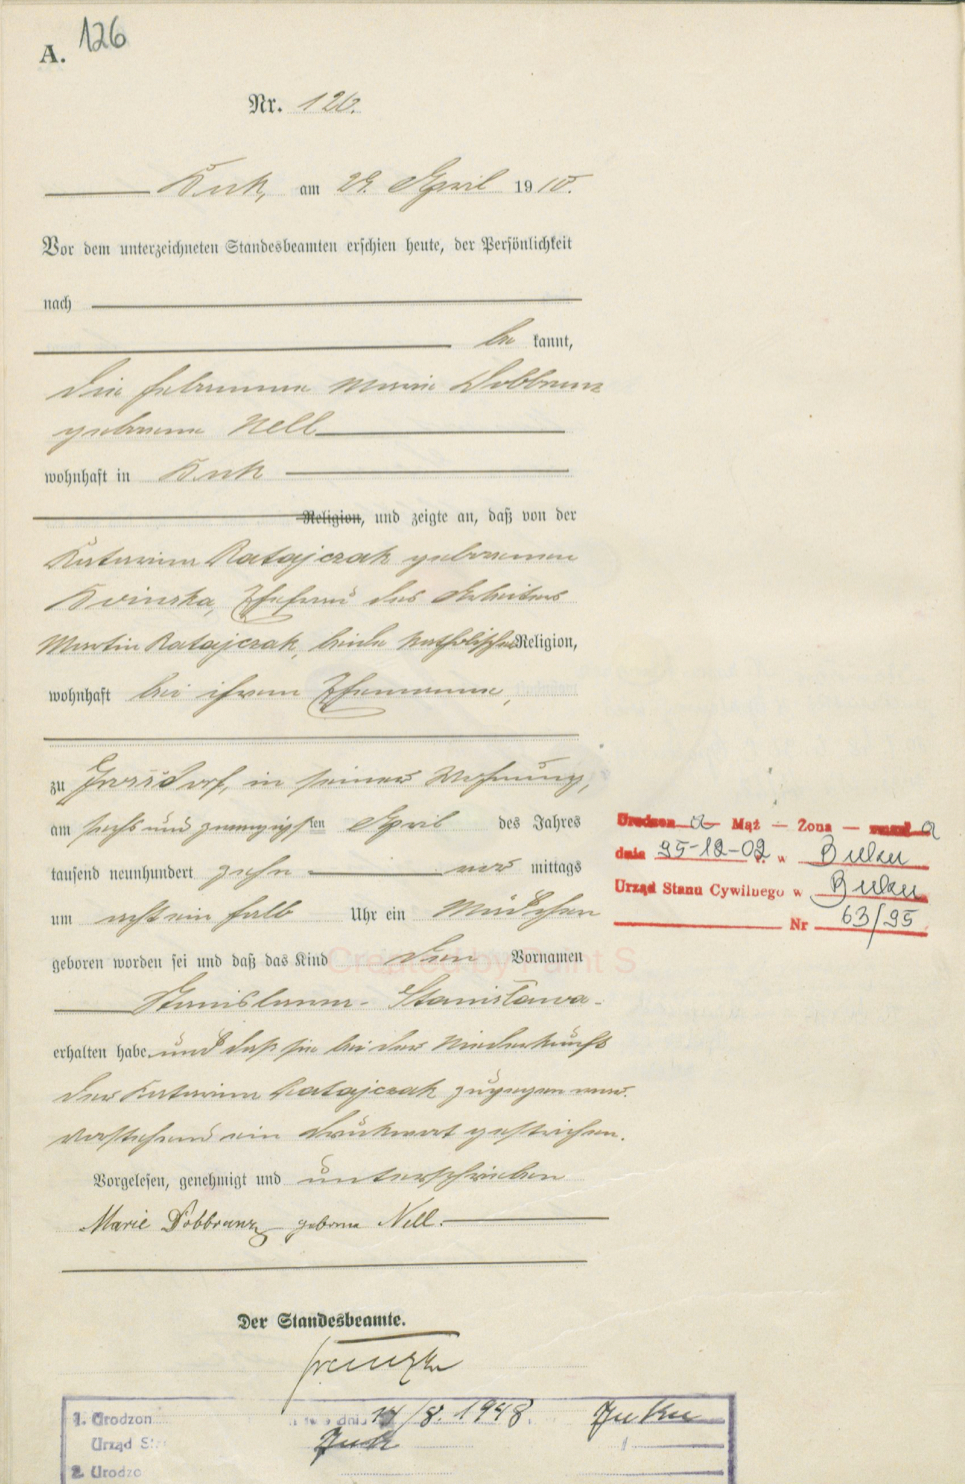 A. 126
Nr. 126.
Buk, am 29. April 1910.
Vor dem unterzeichneten Standesbeamten erschien heute, der Persönlichkeit
nach
be kannt,
die Hebamme Marie Dobbranz
geborene Nell
wohnhaft in Buk
Religion, und zeigte an, daß von der
Katarina Ratajczak geborenen
Ehefrau des Arbeiters
Martin Ratajczak, beide katholischer Religion,
wohnhaft bei ihrem Ehemanne,
zu in seiner Wohnung,
am sechs und zwanzigsten April des Jahres
tausend neunhundert zehn vor mittags
um acht ein halb Uhr ein Mädchen
geboren worden sei und daß das Kind den Vornamen
Stanislawa - Stanisława -
erhalten habe und daß sie bei der Niederkunft
der Katarina Ratajczak zugegen war.
Vorstehend ein Druckwort gestrichen.
Vorgelesen, genehmigt und unterschrieben
Marie Dobbranz geborene Nell.
Der Standesbeamte.
Urodzona Mąż - Żona - zmarł a
dnia 95-12-02 r. w Buku
Urząd Stanu Cywilnego w Buku
Nr 63/95
Created by Point S
1. Urodzon dnia 14/8. 1948. Buku
Urząd Buk
2. Urodzo